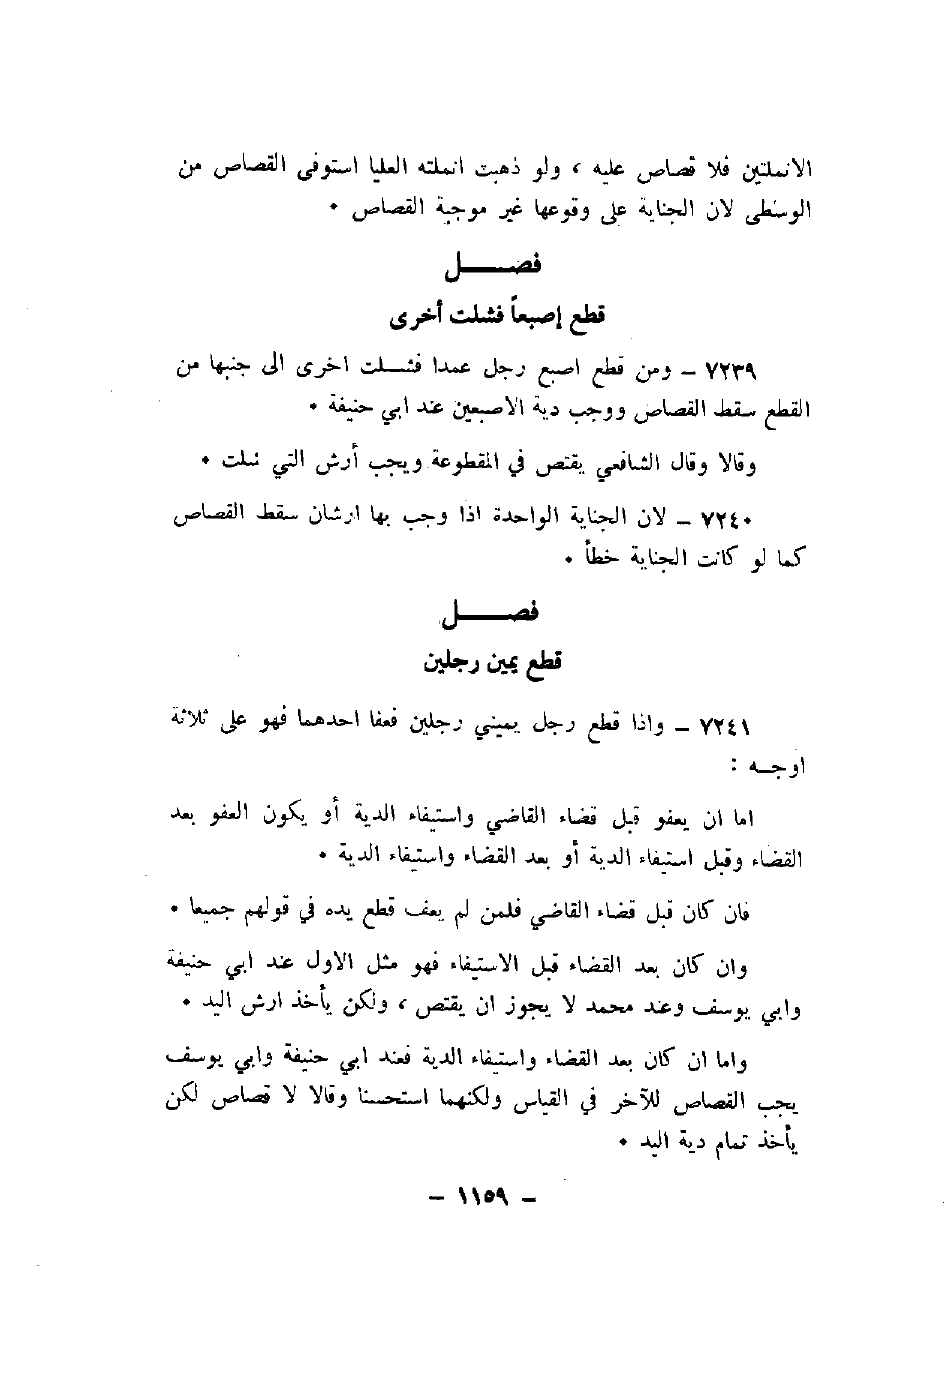 الانملتين فلا قصاص عليه ، ولو ذهبت انملته العليا استوفى القصاص من
الوسطى لان الجناية على وقوعها غير موجبة القصاص ٠
فصـــــل
قطع إصبعاً فشلت أخرى
٧٢٣٩ ـ ومن قطع اصبع رجل عمدا فشـلت اخرى الى جنبها من
القطع سقط القصاص ووجب دية الاصبعين عند ابي حنيفة ٠
وقالا وقال الشافعي يقتص في المقطوعة ويجب أرش التي شلت ٠
٧٢٤٠ ـ لان الجناية الواحدة اذا وجب بها ارشان سقط القصاص
كما لو كانت الجناية خطأ ٠
فصـــــل
قطع يمين رجلين
٧٢٤١ ـ واذا قطع رجل يميني رجلين فعفا احدهما فهو على ثلاثة
اوجـه :
اما ان يعفو قبل قضاء القاضي واستيفاء الدية أو يكون العفو بعد
القضاء وقبل استيفاء الدية أو بعد القضاء واستيفاء الدية ٠
فان كان قبل قضاء القاضي فلمن لم يعف قطع يده في قولهم جميعا ٠
وان كان بعد القضاء قبل الاستيفاء فهو مثل الاول عند ابي حنيفة
وابي يوسف وعند محمد لا يجوز ان يقتص ، ولكن يأخذ ارش اليد ٠
واما ان كان بعد القضاء واستيفاء الدية فعند ابي حنيفة وابي يوسف
يجب القصاص للآخر في القياس ولكنهما استحسنا وقالا لا قصاص لكن
يأخذ تمام دية اليد ٠
ـ ١١٥٩ ـ